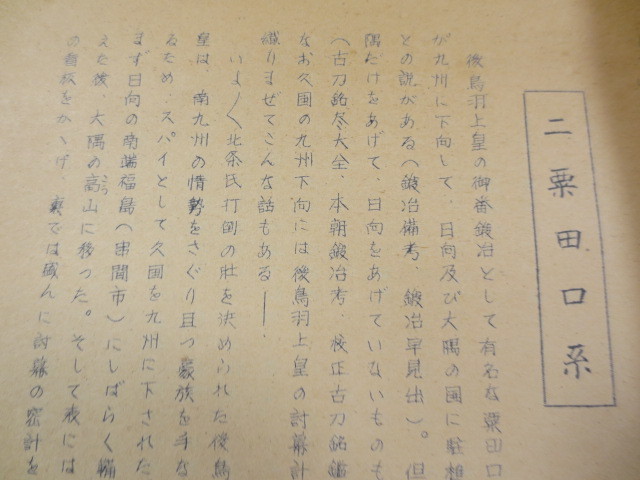 二 粟田口系
後鳥羽上皇の御番鍛冶として有名な粟田口
が九州に下向して、日向及び大隅の国に駐
との説がある(鍛冶備考、鍛冶早見出)。但
隅だけをあげて、日向をあげていないものも
(古刀銘尽大全、本朝鍛冶考、校正古刀銘鑑
なお久国の九州下向には後鳥羽上皇の討幕計
織りまぜてこんな話もある――。
いよ〱北条氏打倒の肚を決められた後鳥
皇は、南九州の情勢をさぐり且つ豪族を手な
るため、スパイとして久国を九州に下された
まず日向の南端福島(串間市)にしばらく
えた後、大隅の高山に移った。そして表には
の看板をかゝげ、裏では盛んに討幕の密計を